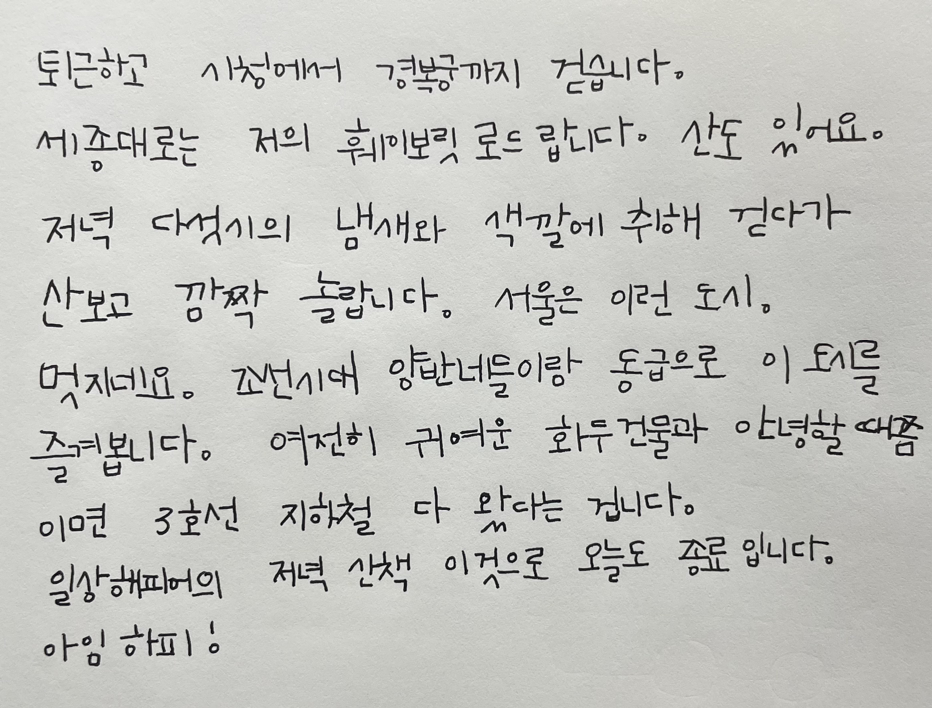 퇴근하고 시청에서 경복궁까지 걷습니다.
세종대로는 저의 훼이보릿 로드 랍니다. 산도 있어요.
저녁 다섯시의 냄새와 색깔에 취해 걷다가
산보고 깜짝 놀랍니다. 서울은 이런 도시.
멋지네요. 조선시대 양반네들이랑 동급으로 이 도시를
즐겨봅니다. 여전히 귀여운 화두건물과 안녕할 때쯤
이면 3호선 지하철 다 왔다는 겁니다.
일상해피어의 저녁 산책 이것으로 오늘도 종료입니다.
아임 하피!